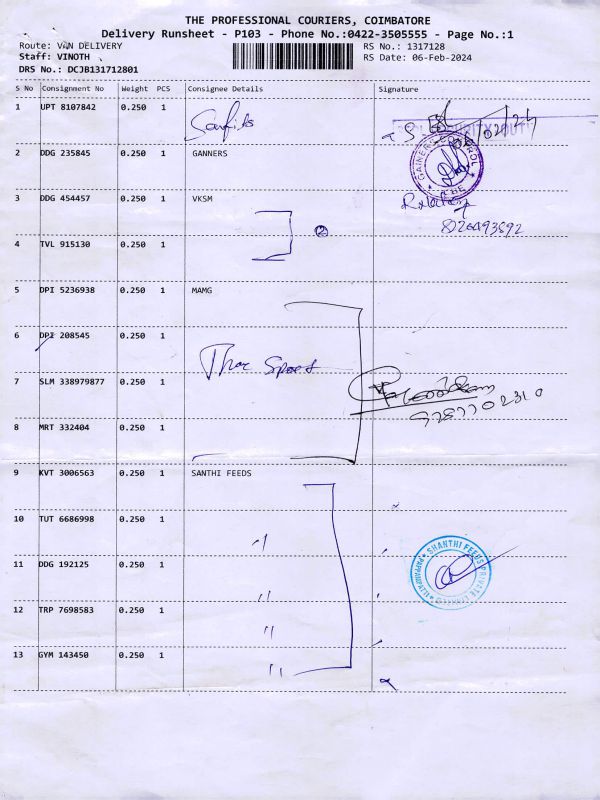 THE PROFESSIONAL COURIERS, COIMBATORE
Delivery Runsheet - P103 - Phone No.:0422-3505555 - Page No.:1
Route: VAN DELIVERY RS No.: 1317128
Staff: VINOTH RS Date: 06-Feb-2024
DRS No.: DCJB131712801
S No Consignment No Weight PCS Consignee Details Signature
1 UPT 8107842 0.250 1
2 DDG 235845 0.250 1 GANNERS
3 DDG 454457 0.250 1 VKSM
8220493692
(2)
4 TVL 915130 0.250 1
5 DPI 5236938 0.250 1 MAMG
6 DPI 208545 0.250 1
Thor Sports
7 SLM 338979877 0.250 1
9787702310
8 MRT 332404 0.250 1
9 KVT 3006563 0.250 1 SANTHI FEEDS
10 TUT 6686998 0.250 1
"
11 DDG 192125 0.250 1
SHANTHI FEEDS PRIVATE LIMITED
"
12 TRP 7698583 0.250 1
"
13 GYM 143450 0.250 1
"